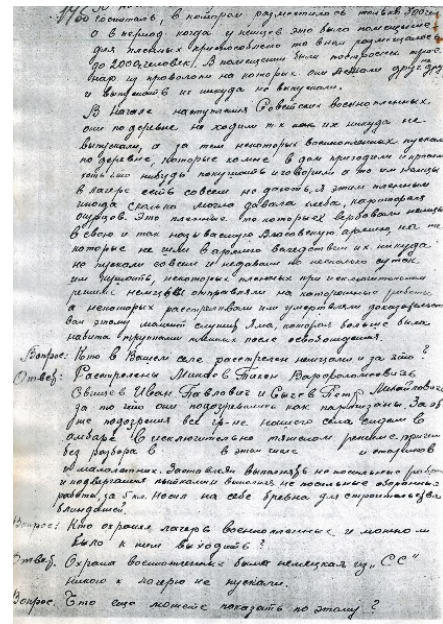 госпиталь, в котором разместилось только 300 чел
а в период когда у немцев это было помещение
для пленных приспособлено то в нем размещалось
до 2000 человек. В помещении были построены трое
нар из проволоки на которых они лежали друг на друге
и выпускать их никуда не выпускали.
В начале наступления Советских военнопленных
они по деревне не ходили т.к. как их никуда не
выпускали, а за тем некоторых военнопленных пускали
по деревне, которые ко мне в дом приходили и просили
хоть что нибудь покушать и говорили а то им немцы
в лагере есть совсем не дают, я этим пленным
иногда сколько могла давала хлеба, картофеля
огурцов. Это пленные то которых вербовали немцы
в свою и так называемую Власовскую армию, на те
которые не шли в армию впоследствии их никуда
не пускали совсем и недавали по несколько суток
им кушать, некоторых пленных при исключительном
режиме немцы отправляли на каторженные работы
а некоторых расстреливали или умертвляли доказательством
этому может служить яма, которая больше была
набита трупами пленных после освобождения.
Вопрос: Кто в Вашем селе расстрелен немцами и за что?
Ответ: Расстрелены Минаев Тихон Варфоломеевич
Свищев Иван Павлович и Сычев Петр Михайлович
за то что они подозревались как партизаны. За эти
уже подозрения все гр-не нашего села сидели в
амбаре в исключительно тяжелом режиме, причем
без разбора в в этом числе и стариков
и малолетних. Заставляли выполнять не посильные работы
и подвергались пыткам и выполняя не посильные оборонные
работы, за 5 км. носил на себе бревна для строительства
блиндажей.
Вопрос: Кто охранял лагерь военнопленных и можно ли
было к ним выходить?
Ответ: Охрана военнопленных была немецкая из "СС"
никого к лагерю не пускали.
Вопрос. Что еще можете показать по этому?